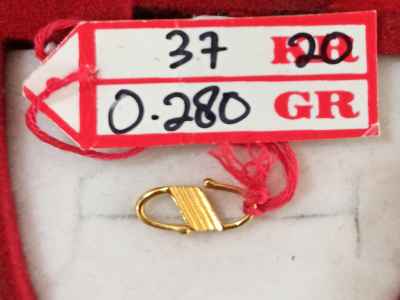 37 KR 20
0.280 GR